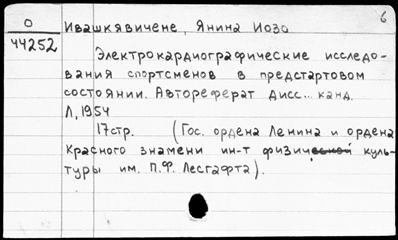 6
О Ивашкявичене, Янина Иозо
44252
Электрокардиографические исследо-
вания спортсменов в предстартовом
состоянии. Автореферат дисс... канд.
Л., 1954
17стр. (Гос. ордена Ленина и ордена
Красного знамени ин-т физической куль-
туры им. П.Ф. Лесгафта).